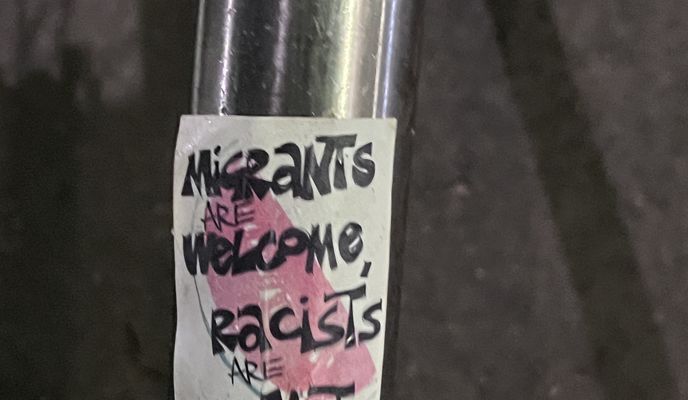 MiGRaNTS
ARE
WeLCOMe,
RacisTs
ARE